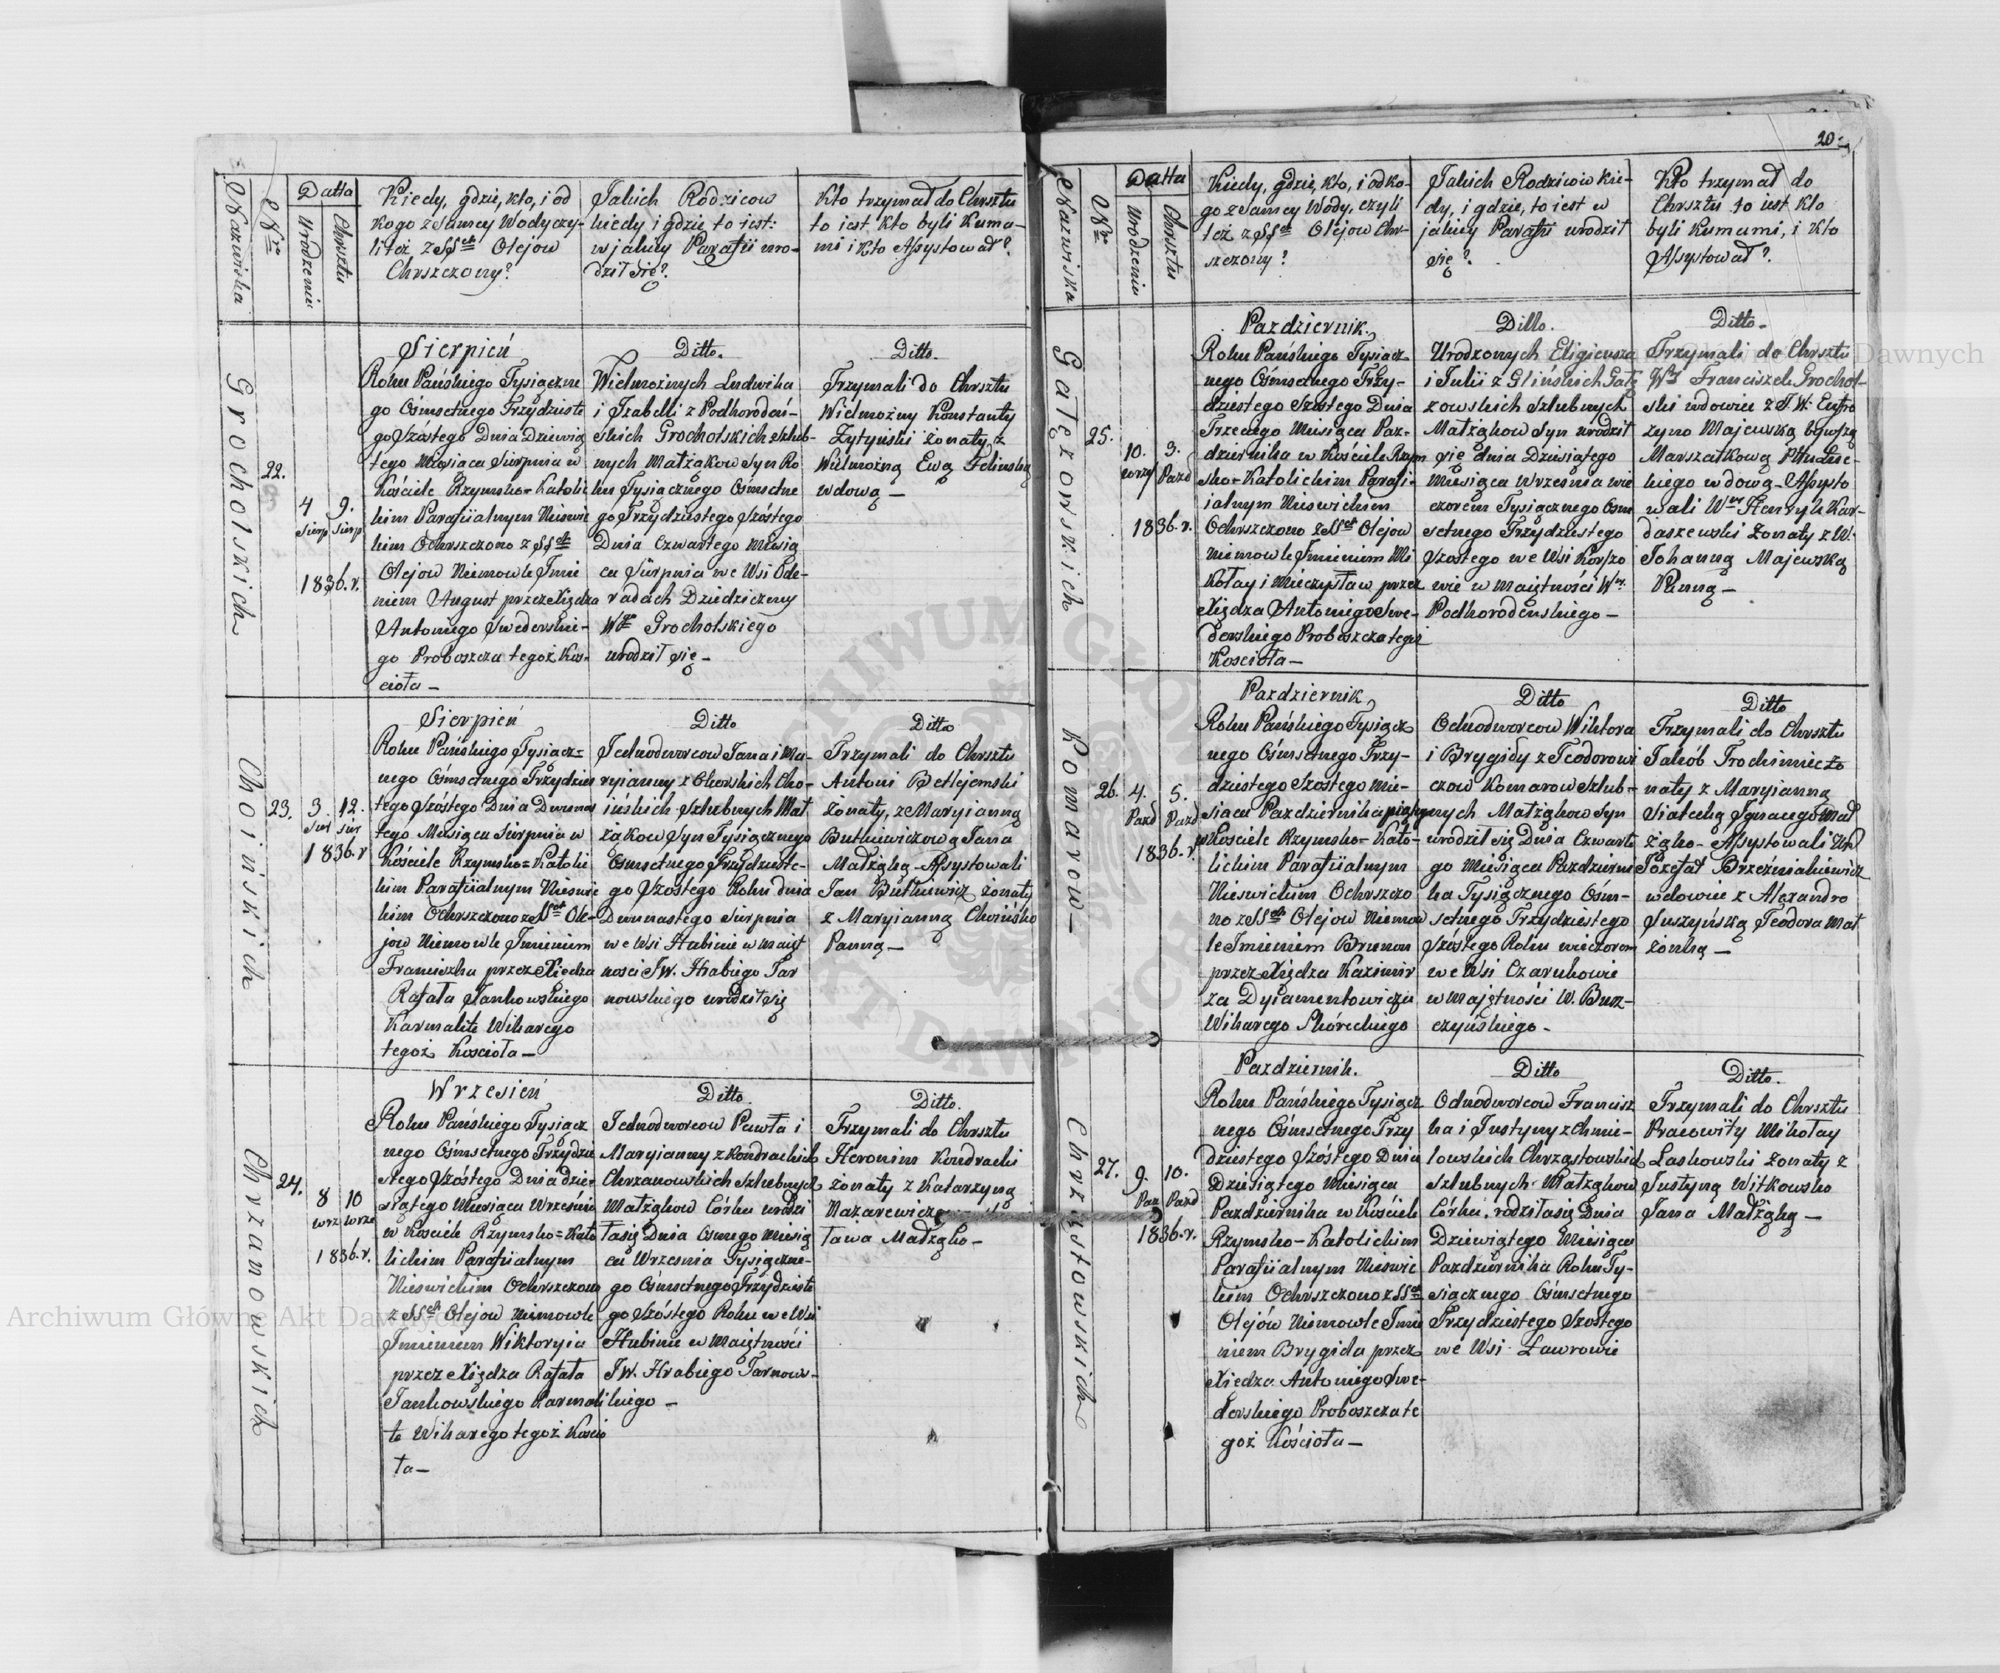 Nazwiska
Nro
Datta
Urodzenia
Chrsztu
Kiedy, gdzie, kto, i od
kogo z Samey Wody czy-
li też z SSch Olejow
Chrszczony?
Jakich Rodzicow
kiedy i gdzie to iest:
w jakiey Parafii uro-
dził się?
Kto trzymał do Chrsztu
to iest kto byli Kuma-
mi i kto Assystował?
Grocholskich
22.
4 9.
Sierp Sierp
1836.r.
Sierpień
Roku Pańskiego Tysiączne
go Ośmsetnego Trzydzieste
go Szóstego Dnia Dziewią
tego Miesiąca Sierpnia w
Kościele Rzymsko=Katolic
kim Parafiialnym Nieświc
kim Ochrszczono z SSch
Olejow Niemowle Imie
niem August przez Xiędza
Antoniego Swederskie-
go Proboszcza tegoż Koś-
cioła —
Ditto.
Wielmożnych Ludwika
i Izabelli z Podhorodeń-
skich Grocholskich Szlub-
nych Małżąkow Syn Ro
ku Tysiącznego Ośmsetne
go Trzydziestego Szóstego
Dnia Czwartego Miesią
ca Sierpnia we Wsi Ode-
radach Dziedziczney
Wgo Grocholskiego
urodził się —
Ditto.
Trzymali do Chrsztu
Wielmożny Konstanty
Żytyński żonaty z
Wielmożną Ewą Felinską
wdową —
Choińskich
23.
3. 12.
Sier Sier
1836.r
Sierpień
Roku Pańskiego Tysiącz=
nego Ośmsetnego Trzydzies
tego Szóstego Dnia Dwunas
tego Miesiąca Sierpnia w
Kościele Rzymsko=Katolic
kim Parafiialnym Nieświc
kim Ochrszczono z SSch Ole-
jow Niemowle Imieniem
Franciszka przez Xiędza
Rafała Jankowskiego
Karmalite Wikarego
tegoż Kościoła —
Ditto
Jednodworcow Jana i Ma-
ryianny z Olwskich Cho-
ińskich Szlubnych Mał
żąkow Syn Tysiącznego
Ośmsetnego Trzydzieste-
go Szóstego Roku dnia
Dwunastego Sierpnia
we Wsi Hubinie w maięt
ności JW. Hrabiego Tar
nowskiego urodził się
Ditto
Trzymali do Chrsztu
Antoni Betlejemski
Żonaty, z Maryianną
Butkiewiczową Jana
Małżąką - Assystowali
Jan Butkiewicz żonaty
z Maryianną Choińską
Panną —
Chrzanowskich
24.
8 10
wrz wrze
1836.r.
Wrzesień
Roku Pańskiego Tysiącz
nego Ośmsetnego Trzydzie
stego Szóstego Dnia Dzie-
siątego Miesiąca Wrześnie
w Kościele Rzymsko=Kato
lickim Parafiialnym
Nieswickim Ochrszczono
z SSch Olejow Niemowle
Imieniem Wiktoryia
przez Xiędza Rafała
Jankowskiego Karmali
te Wikarego tegoż Koscio
ła —
Ditto.
Jednodworcow Pawła i
Maryianny z Kondrackich
Chrzanowskich Szlubnych
Małżąkow Córka urodzi
ła się Dnia Osmego Miesią
ca Wrzesnia Tysiączne-
go Osmsetnego Trzydzieste
go Szóstego Roku we Wsi
Hubinie w Maiętności
JW. Hrabiego Tarnow-
skiego —
Ditto.
Trzymali do Chrsztu
Heronim Kondracki
żonaty z Katarzyną
ława Małżąką —
20.
Nazwiska
Nro
Datta
Urodzenia
Chrsztu
Kiedy, gdzie, kto, i od ko-
go z Samey Wody, czyli
też z SSch Olejow Chr-
szczony?
Jakich Rodzicow kie-
dy, i gdzie, to iest w
jakiey Parafii urodził
się?
Kto trzymał do
Chrsztu to iest kto
byli Kumami, i kto
Assystował?
Gałęzowskich
25.
10. 3.
wrze Pazd
1836.r.
Pazdziernik.
Roku Pańskiego Tysiącz-
nego Ośmsetnego Trzy-
dziestego Szóstego Dnia
Trzeciego Miesiąca Paz-
dziernika w Kościele Rzym
sko-Katolickim Parafi-
ialnym Nieswickim
Ochrszczono z SSch Olejow
Niemowle Imieniem Mi
kołay i Mieczysław przez
Xiędza Antoniego Swe-
derskiego Proboszcza tegoż
Kościoła —
Ditto.
Urodzonych Eligiusza
i Julii z Glińskich Gałę
zowskich Szlubnych
Małżąkow Syn urodził
się dnia Dziesiątego
Miesiąca Września wie
czorem Tysiącznego Ośm
setnego Trzydziestego
Szóstego we Wsi Korszo
wie w maiętności Wgo
Podhorodeńskiego —
Ditto.
Trzymali do Chrsztu
Wny Franciszek Grochol-
ski wdowiec z J.W. Eufro
zyną Majewską bywszą
Marszałkową Włudzie-
kiego wdową - Assysto
wali Wny Henryk Kar-
daszewski Żonaty z W.
Johanną Majewską
Panną —
Komarow —
26.
4. 5.
Pazd Pazd
1836.r.
Pazdziernik
Roku Pańskiego Tysiącz
nego Ośmsetnego Trzy-
dziestego Szostego Mie-
siąca Pazdziernika piątego
w Kościele Rzymsko-Kato-
lickim Parafiialnym
Nieswickim Ochrszczo
no z SSch Olejow Niemow
le Imieniem Brunon
przez Xiędza Kazimir
za Dyiamentowicza
Wikarego Skóreckiego
Ditto
Odnodworcow Wiktora
i Brygidy z Teodorowi
czow Komarow Szlub-
nych Małżąkow Syn
urodził się Dnia Czwarte
go Miesiąca Pazdzierni
ka Tysiącznego Ośm-
setnego Trzydziestego
Szóstego Roku wieczorem
we Wsi Czarukowie
w majętności W. Bucz-
czyńskiego -
Ditto
Trzymali do Chrsztu
Jakób Trochimie żo
naty z Maryianną
Siatecką Ignacego Mał
żąką - Assystowali
Jozefat Brzezniakiewicz
wdowiec z Alexandrą
Suszyńską Teodora Mał
żonką —
Chrząstowskich
27.
9. 10.
Paz Pazd
1836.r.
Pazdziernik.
Roku Pańskiego Tysiącz
nego Ośmsetnego Trzy
dziestego Szóstego Dnia
Dziesiątego Miesiąca
Pazdziernika w Kościele
Rzymsko-Katolickim
Parafiialnym Nieswic
kim Ochrszczono z SSch
Olejów Niemowle Imie
niem Brygida przez
Xiedza Antoniego Swe-
derskiego Proboszcza te
goż Kościoła —
Ditto
Odnodworcow Francisz
ka i Justyny z Chmie-
lowskich Chrząstowskich
Szlubnych Małżąkow
Córka rodziła się Dnia
Dziewiątego Miesiąca
Pazdziernika Roku Ty-
siącznego Ośmsetnego
Trzydziestego Szóstego
we Wsi Ławrowie
Ditto.
Trzymali do Chrsztu
Pracowity Mikołay
Laskowski żonaty z
Justyną Witkowską
Jana Małżąką —
Archiwum Główne Akt Dawnych